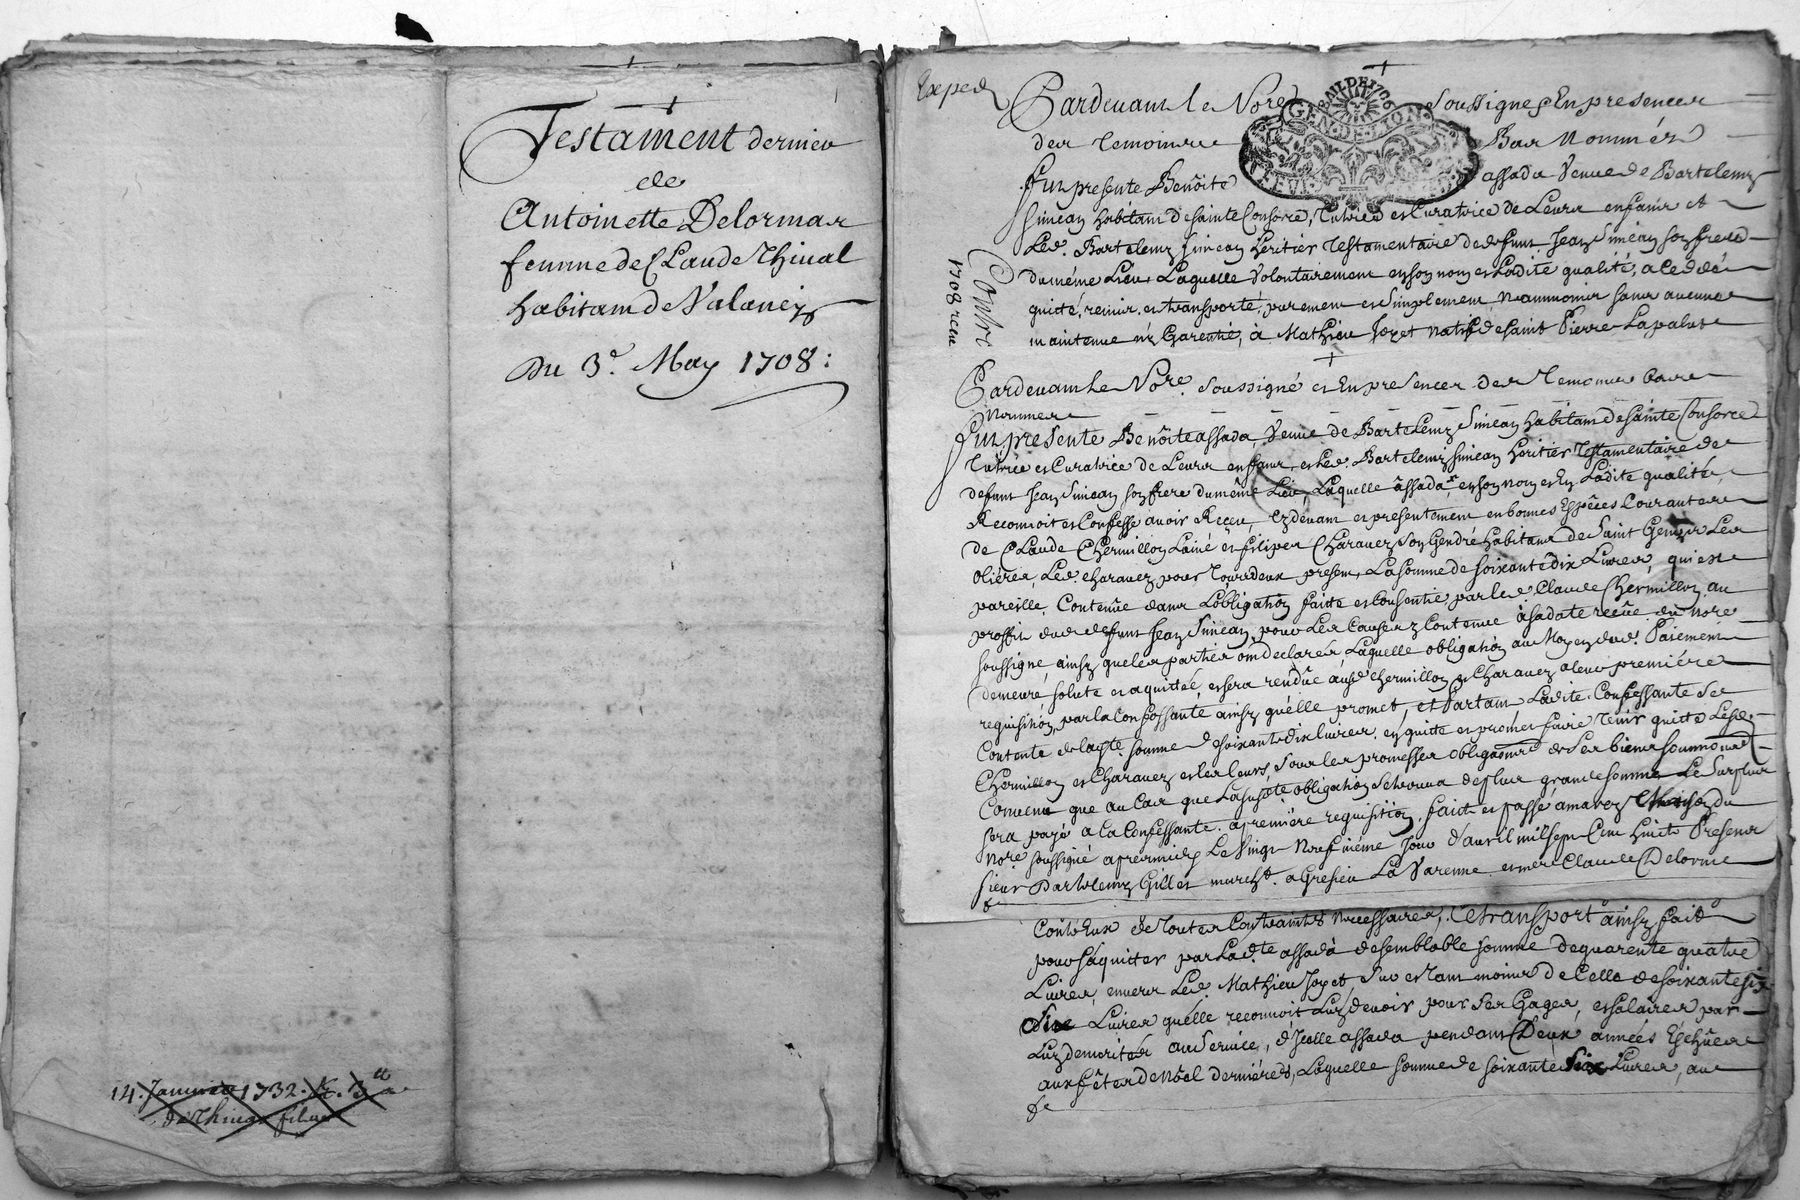 Testament dernier
de
Antoinette Delormas
femme de Claude Thival
habitant de Valancy
Du 3e. May 1708 :
14. Janvier 1732.
de Thival
Exped
Pardevant le Nore soussigné, En presence
des temoins Bas Nommés
BAIL DE 1706
GEN. DE LYON
Fut presente Benôite assada Veuve de Bartelemy
Simean habitant de sainte Consorce, Tutrice et Curatrice de Leurs enfans et
Led. Bartelemy Simean heritier Testamentaire de defunt Jean Simean son frere
du même Lieu Laquelle Volontairement en son nom et Ladite qualité, a Cedde
quitté, remis et transporté, purement et simplement Neanmoins sans aucune
maintenue ny Garentie, à Mathieu Jozet natif de saint Pierre Lapalu
Contre
1708 reçu
Pardevant le Nore. soussigné et En presence des Temoins bas
Nommes
Fut presente Benôite assada Veuve de Bartelemy Simean habitant de sainte Consorce
Tutrice et Curatrice de Leurs enfans, et Led. Bartelemy Simean heritier Testamentaire de
defunt Jean Simean son frere du même Lieu, Laquelle âssada, en son nom et En Ladite qualité,
Reconnoit et Confesse avoir Reçeu, Cydevant et presentement en bonnes Espêces Courantes
de Claude Chermillon Lainé et Chavavez son Gendre habitans de Saint Genis Les
Oliéres, Led. Charavez pour Tous deux present, La somme de soixante dix Livres, qui est
pareille Contenüe dans L'obligation faite et Consentie par led. Claude Chermillon au
proffit dud. defunt Jean Simean, pour Les Causes y Contenue à sa date reçüe du Nore
soussigné, ainsy que les parties ont declarées, Laquelle obligation au Moyen dud. Paiement
demeure solute et aquittée, et sera rendüe ausd. Chermillon et Charavez a leur premiére
requisition par la Confessante ainsy quélle promet, et Partant Ladite Confessante se
Contente de lad.te somme de soixante dix livres, en quitte et promet faire tenir quitte Lesd.
Chermillon et Charavez et les leurs, sous les promesses obligaõns de ses biens
Convenu que au Cas que La susd.te obligation se trouva de plus grande somme Le surplus
sera payé a la Confessante a premiere requisition. Faict et passé
Nore soussigné apres midy Le Vingt Neufviéme Jour d'avril mil sept Cent huict Presens
sieur Bartelemy Gillet march.t a Gresieu La Varenne et Claude Delorme
&
Conteux de toutes Contraintes Necessaires, Ce transport ainsy fait
pour saquitter par Lad.te assadà de semblable somme de quarente quatre
Livres, envers Led. Mathieu Jozet, Sur et tant moins de Celle de soixante six
Livres quélle reconnoit Luy devoir pour ses Gages, et salaires par
Luy merités au service, d'Icelle assada pendant Deux années Eschües
aux fêtes de Noël dernieres, Laquelle somme de soixante six Livres, au
&